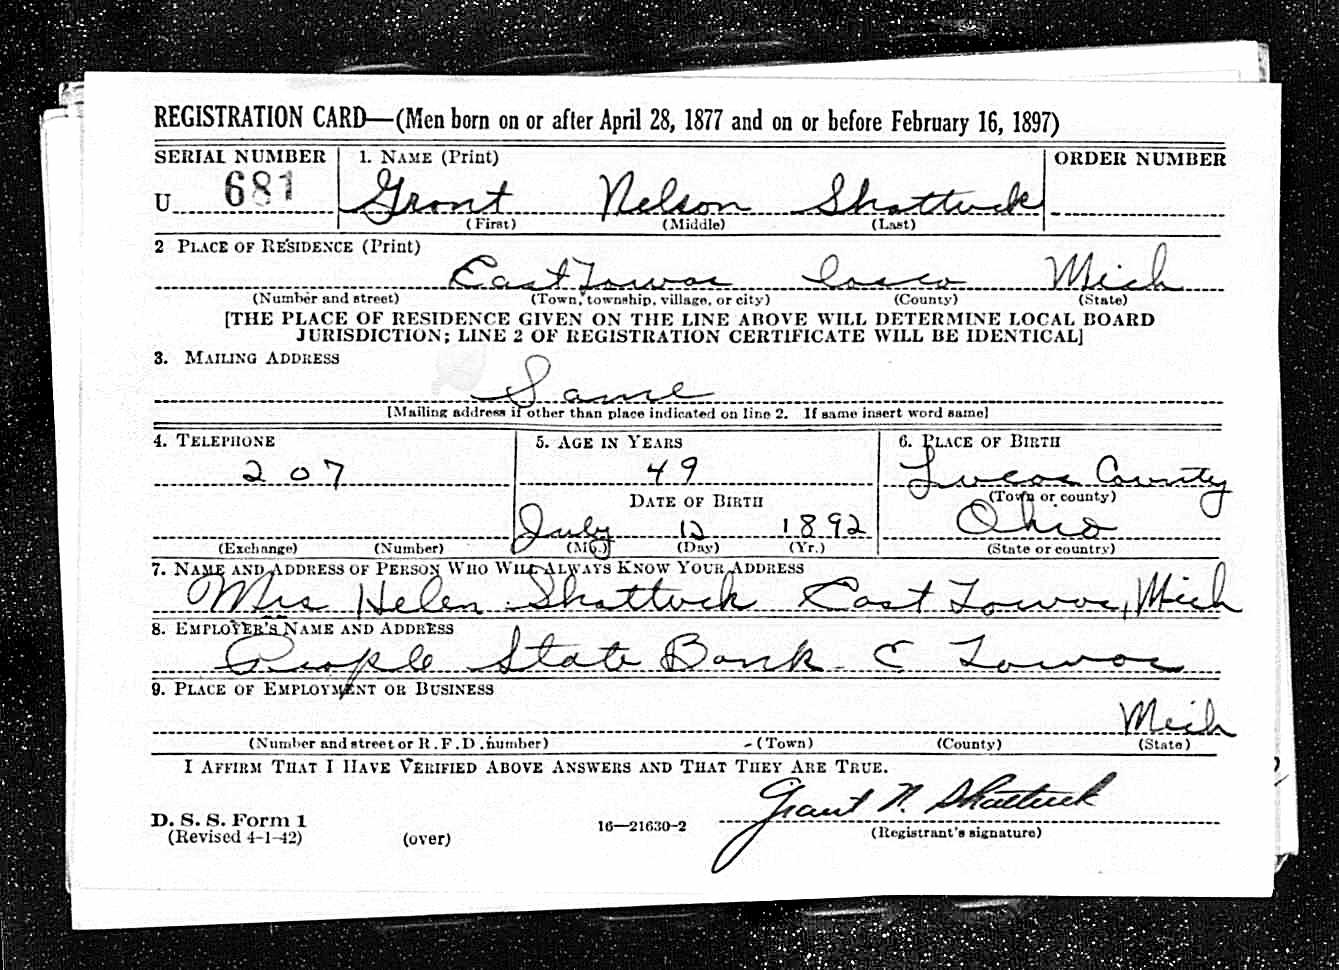 REGISTRATION CARD—(Men born on or after April 28, 1877 and on or before February 16, 1897)
SERIAL NUMBER 1. NAME (Print) ORDER NUMBER
U 681 Grant Nelson Shattuck
(First) (Middle) (Last)
2 PLACE OF RESIDENCE (Print)
East Tawas Iosco Mich
(Number and street) (Town, township, village, or city) (County) (State)
[THE PLACE OF RESIDENCE GIVEN ON THE LINE ABOVE WILL DETERMINE LOCAL BOARD
JURISDICTION; LINE 2 OF REGISTRATION CERTIFICATE WILL BE IDENTICAL]
3. MAILING ADDRESS
Same
[Mailing address if other than place indicated on line 2. If same insert word same]
4. TELEPHONE 5. AGE IN YEARS 6. PLACE OF BIRTH
207 49 Lucas County
DATE OF BIRTH (Town or county)
July 12 1892 Ohio
(Exchange) (Number) (Mo.) (Day) (Yr.) (State or country)
7. NAME AND ADDRESS OF PERSON WHO WILL ALWAYS KNOW YOUR ADDRESS
Mrs Helen Shattuck East Tawas, Mich
8. EMPLOYER'S NAME AND ADDRESS
People State Bank E Tawas
9. PLACE OF EMPLOYMENT OR BUSINESS
Mich
(Number and street or R.F.D. number) (Town) (County) (State)
I AFFIRM THAT I HAVE VERIFIED ABOVE ANSWERS AND THAT THEY ARE TRUE.
Grant N. Shattuck
D. S. S. Form 1
(Revised 4-1-42) (over) 16—21630-2 (Registrant's signature)